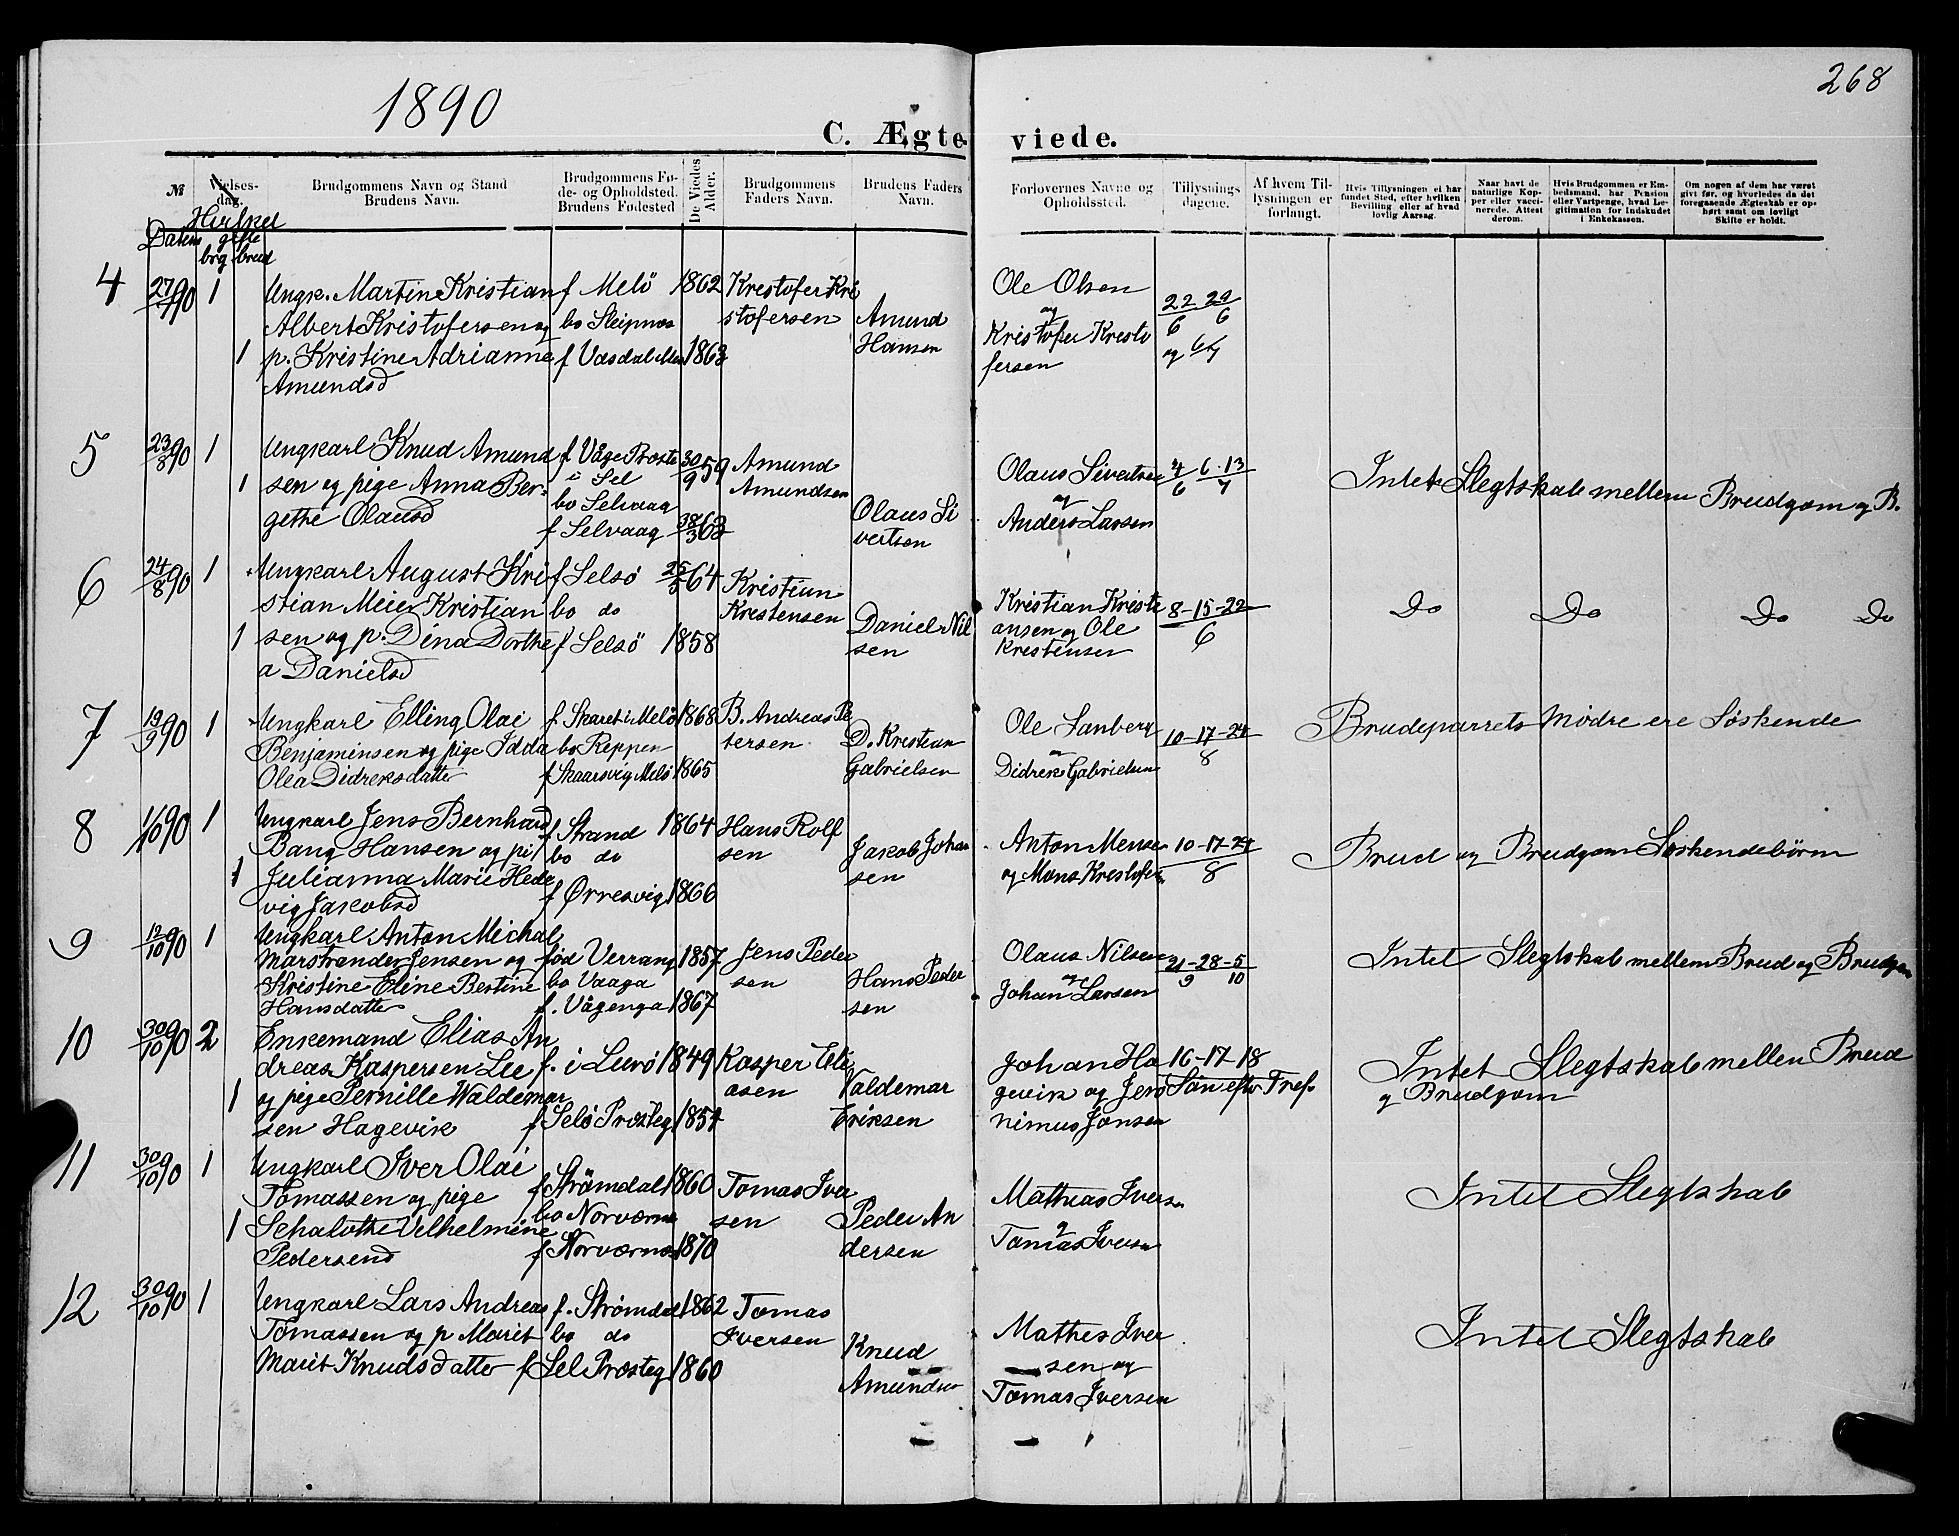 1890
268
C. Ægte-
viede.
№
Vielses-
dag.
Brudgommens Navn og Stand
Brudens Navn.
Brudgommens Fø-
de- og Opholdsted.
Brudens Fødested
De Viedes
Alder.
Brudgommens
Faders Navn.
Brudens Faders
Navn.
Forlovernes Navne og
Opholdssted.
Tillysnings-
dagene.
Af hvem Til-
lysningen er
forlangt.
Hvis Tillysningen ei har
fundet Sted, efter hvilken
Bevilling eller af hvad
lovlig Aarsag.
Naar havt de
naturlige Kop-
per eller vacci-
nerede. Attest
derom.
Hvis Brudgommen er Em-
bedsmand, har Pension
eller Vartpenge, hvad Le-
gitimation for Indskudet
i Enkekassen.
Om nogen af dem har været
givt før, og hvorledes da det
foregaaende Ægteskab er op-
hørt samt om lovligt
Skifte er holdt.
gifte
brg brud
4
1
Ungk. Martin Kristian
Albert Kristofersen og
1 p. Kristine Adrianne
Amundsd
f Melö
bo Sleipnæs
1862
1863
Krestofer Kri
stofersen
Amund
Hansen
Ole Olsen
og
Kristofer Kresto
fersen
22 29
6 6
og 6/7
5
23/8 90
1
1
Ungkarl Knud Amund
sen og pige Anna Ber-
gethe Olausd
f Våge Præste
i Sel
bo Selvaag
f Selvaag
30/9 59
63
Amund
Amundsen
Olaus Si
vertsen
Olaus Sivertsen
og
Anders Larsen
6-13
7
Intet Slegtskab mellem Brudgom og B.
6
24/8 90
1
Ungkarl August Kri
stian Meier Kristian
1 sen og p. Dina Dorthe
a Danielsd
f Selsö
bo do
f Selsö
64
1858
Kristian
Krestensen
Daniel Nil
sen
Kristian Kristi
ansen og Ole
Krestensen
8-15-22
6
Do Do Do Do
7
19/9 90
1
Ungkarl Elling Olai
Benjaminsen og pige Idda
Olea Didreksdatter
f Skaret i Melö
bo Reppen
f Skaarsvig Melö
1868
1865
B. Andreas Pe
tersen
D. Kristian
Gabrielsen
Ole Sanberg
og
Didrek Gabrielsen
10-17-24
8
Brudeparrets Mødre ere Søskende
8
1/10 90
1
1
Ungkarl Jens Bernhard
Bang Hansen og pi
Julianna Marie Hede
vig Jakobsd
f Strand
bo do
f Ørnesvig
1864
1866
Hans Rolf
sen
Jakob Johan
sen
Anton Mensen
og Mons Krestofer
10-17-24
8
Brud og Brudgom Søskendebörn
9
12/10 90
1
Ungkarl Anton Michal
Marstrander Jensen og
Kristine Eline Bertine
Hansdatter
fød Verrang
bo Vaaga
f. Vågenga
1857
1867
Jens Peder
sen
Hans Peder
sen
Olaus Nilsen
og
Johan Larsen
21-28-5
9 10
Intet Slegtskab mellem Brud og Brudgom
10
30/10 90
2
1
Enkemand Elias An
dreas Kaspersen Lie
og pige Pernille Waldemar
sen Hagevik
f. i Lurö
f Selö Præsteg
1849
1854
Kasper Eli
asen
Valdemar
Eriksen
Johan Ha
gevik og Jero
nimus Jonsen
16-17-18
Søn efter Tref.
Intet Slegtskab mellen Brud
og Brudgom
11
30/10 90
1
1
Ungkarl Iver Olai
Tomassen og pige
Schalothe Vilhelmine
Pedersend
f Strømdal
bo Norværnæ
f Norværnæs
1860
1870
Tomas Iver
sen
Peder An
dersen
Mathias Iversen
og
Tomas Iversen
Intet Slegtskab
12
30/10 90
1
Ungkarl Lars Andreas
Tomassen og p Marit
Marit Knudsdatter
f. Strømdal
bo do
f Sel Præsteg
1862
1860
Tomas
Iversen
Knud
Amundsen
Mathes Iver
sen og
Tomas Iversen
Intet Slegtskab